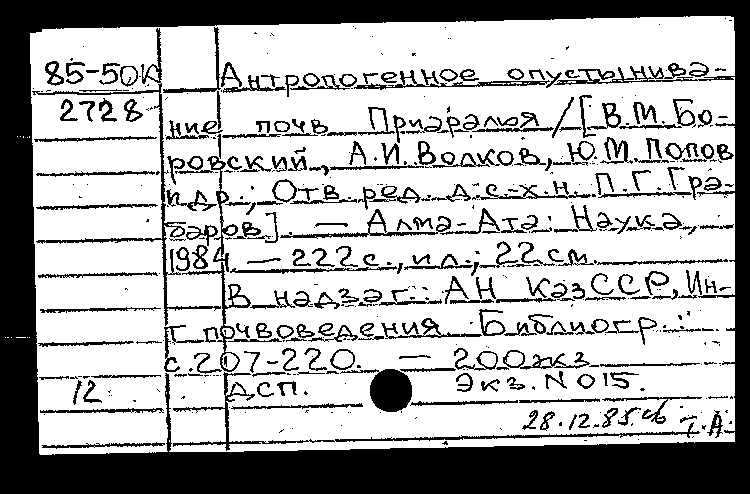 85-50К Антропогенное опустынива-
2728 ние почв Приаралья / [В.М. Бо-
ровский, А.И. Волков, Ю.М. Попов
и др.; Отв. ред. д. с-х. н. П.Г. Гра-
баров]. — Алма-Ата: Наука,
1984. — 222 с., ил.; 22 см.
В надзаг.: АН КазССР, Ин-
т почвоведения. Библиогр.:
с. 207-220. — 200 экз
12 ДСП. Экз. N 015.
28.12.85. Т.А.